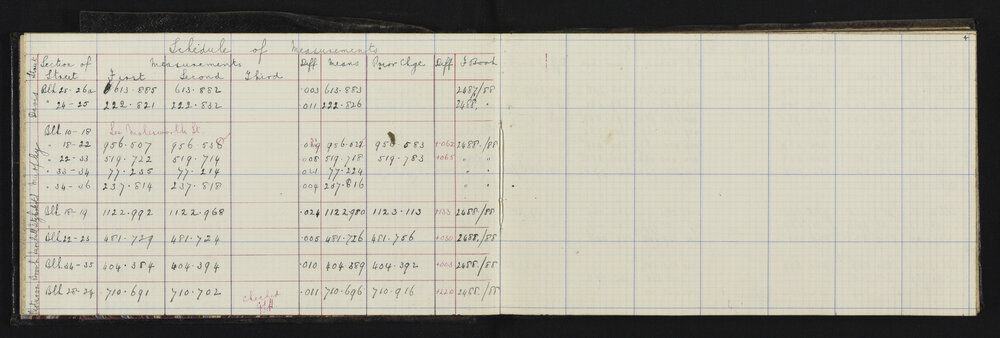 Schedule of Measurements
Street Section of Street Measurements First Second Third Diff Means Prior Chge Diff F. Book
Davis
Blk 25-26a 613.885 613.882 .003 613.883 2487/88
" 24-25 222.821 222.832 .011 222.826 2488 "
Blk 10-18 See Molesworth St
" 18-22 956.507 956.538 956.583 +.062 2488/88
" 22-33 519.722 519.714 .008 519.718 519.783 +.065 " "
" 33-34 77.235 77.214 .021 77.224 " "
" 34-36 237.814 237.818 .004 237.816 " "
Blk 18-19 1122.992 1122.968 .024 1122.980 1123.113 +.133 2488/88
Blk 22-23 481.729 481.724 .005 481.726 481.756 +.030 2488/88
Blk 34-35 404.384 404.394 .010 404.389 404.392 +.003 2488/88
Blk 28-29 710.691 710.702 .011 710.696 710.916 +.220 2488/88
Checked